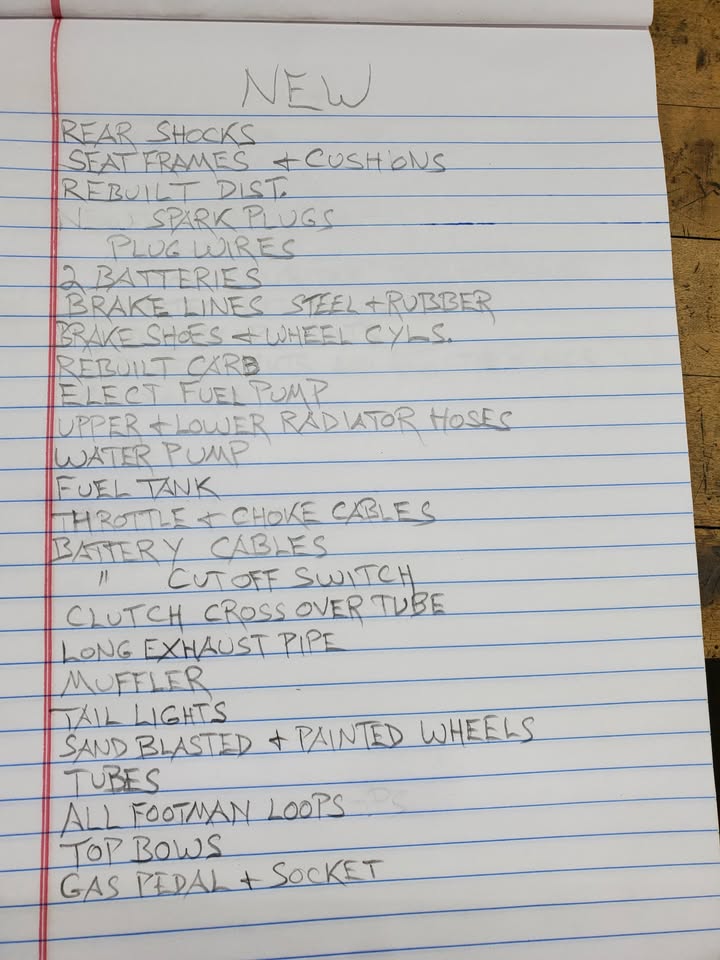 NEW
REAR SHOCKS
SEAT FRAMES + CUSHIONS
REBUILT DIST.
SPARK PLUGS
PLUG WIRES
2 BATTERIES
BRAKE LINES STEEL + RUBBER
BRAKE SHOES + WHEEL CYLS.
REBUILT CARB
ELECT FUEL PUMP
UPPER + LOWER RADIATOR HOSES
WATER PUMP
FUEL TANK
THROTTLE + CHOKE CABLES
BATTERY CABLES
" CUT OFF SWITCH
CLUTCH CROSS OVER TUBE
LONG EXHAUST PIPE
MUFFLER
TAIL LIGHTS
SAND BLASTED + PAINTED WHEELS
TUBES
ALL FOOTMAN LOOPS
TOP BOWS
GAS PEDAL + SOCKET